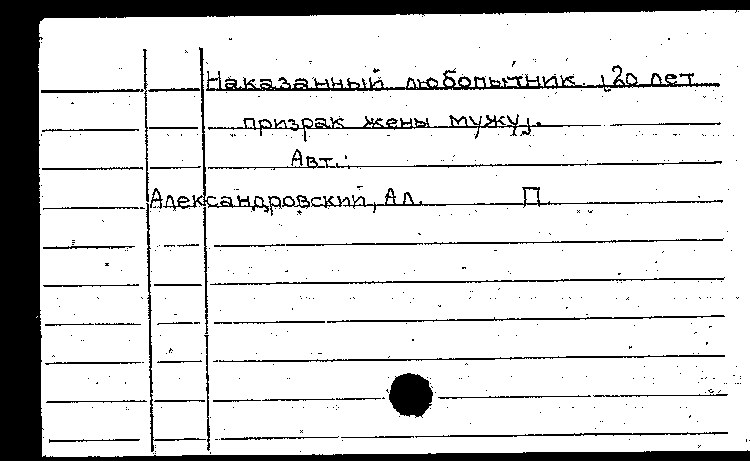 Наказанный любопытник. [20 лет
призрак жены мужу].
Авт.:
Александровский, Ал. П